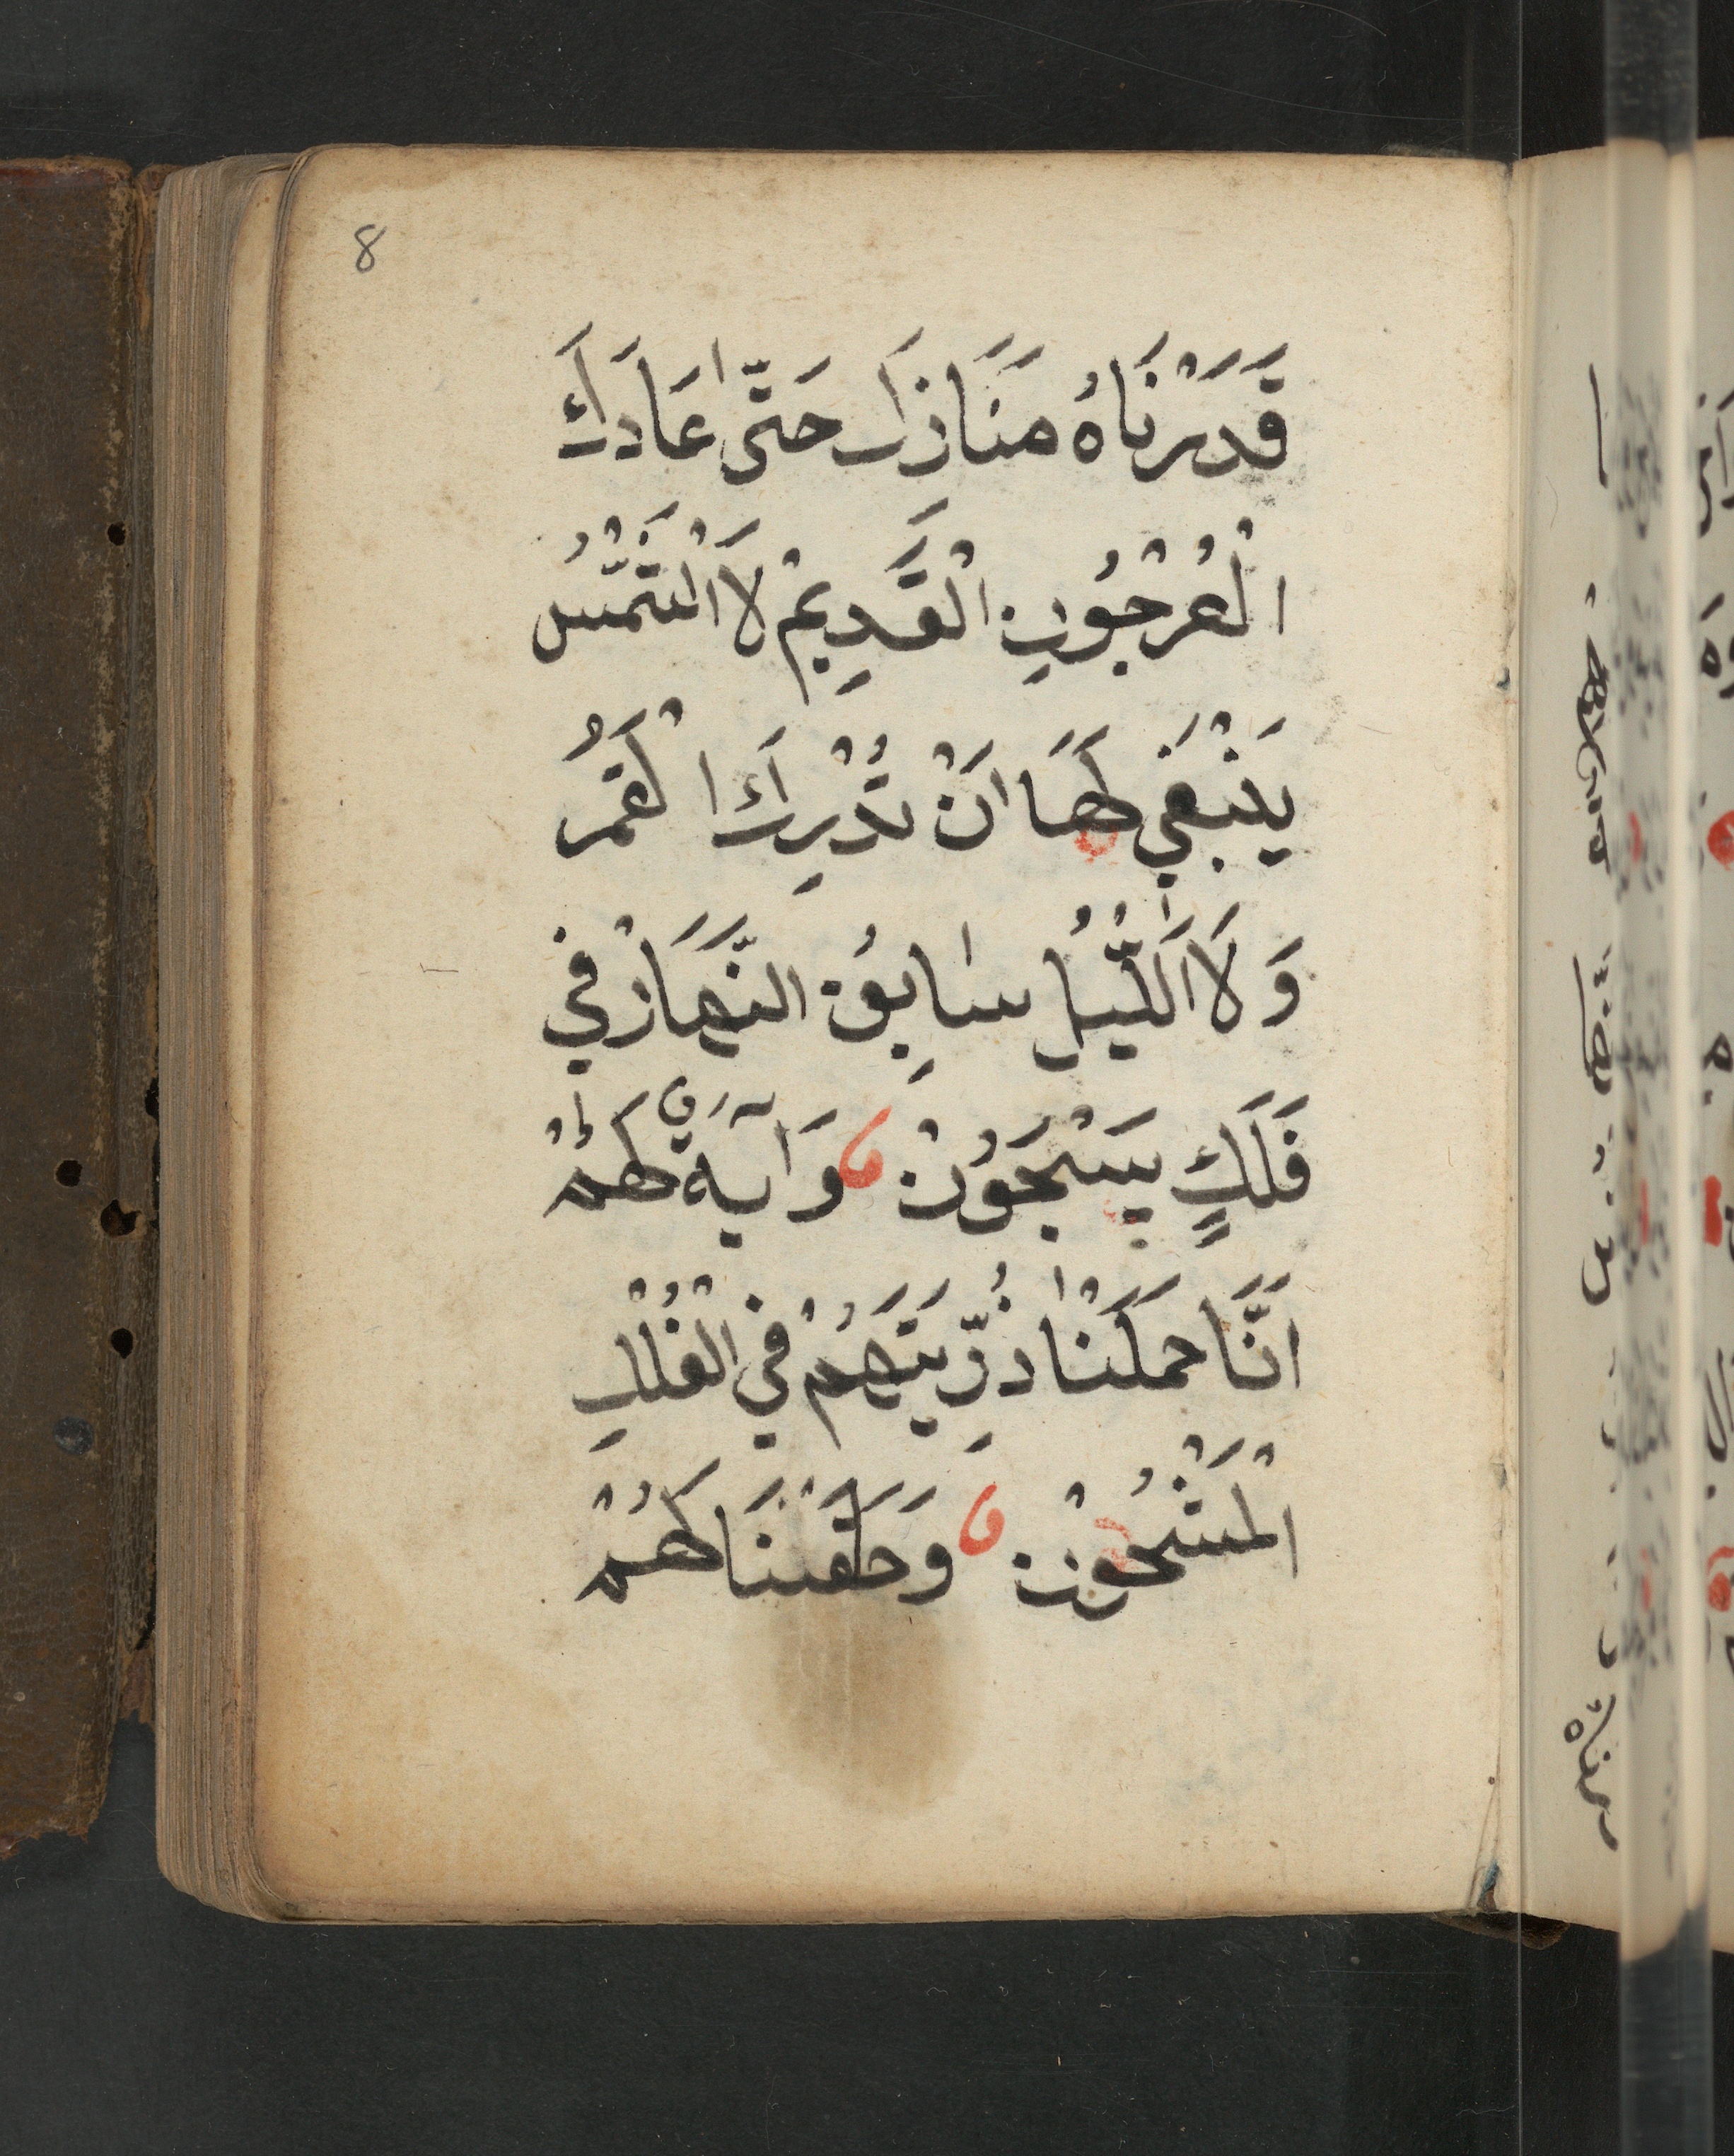 8
قَدَرْنَاهُ مَنَازَِلَ حَتّٰى عَادَكَ
الْعُرْجُونِ الْقَدِيمْ لَا الْشَمْسُ
يَنْبَغِي لَهَا اَنْ تُدْرِكَ ا لْقَمَرُ
وَ لَا اللَّيْلُ سَابِقُ النَّهَارْ فِي
فَلَكٍ يَسْبَحَوُنْ وَاٰيَةٌ لَهُمْ
اَنَّا حَمَلْنٰا ذُرِّيَتَهُمْ فِي الْفُلْكِ
الْمَشْحُونْ وَخَلَقْنَا لَهُمْ